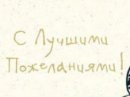 С Лучшими
Пожеланиями!